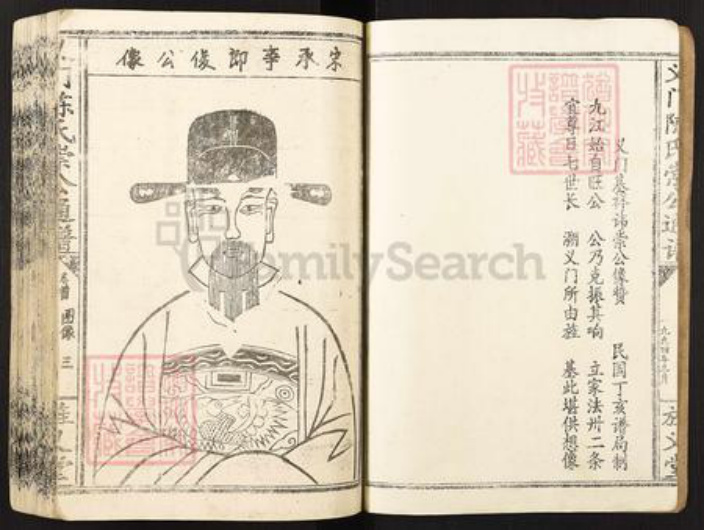 宋承事郎俊公像
义门陈氏崇公通谱
卷首 图像 三
旌义堂
义门基祥諱崇公像贊 民国丁亥谱局制
九江始自旺公 公乃克振其响 立家法卅二条
宜尊曰七世长 溯义门所由旌 基此堪供想像
义门陈氏崇公通谱
旌义堂
FamilySearch